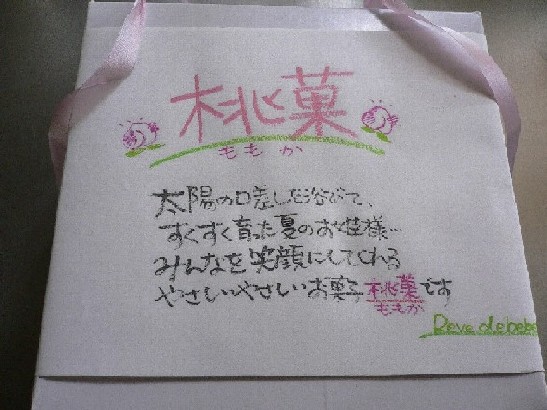 桃菓
ももか
太陽の日差しを浴びて、
すくすく育った夏のお姫様…
みんなを笑顔にしてくれる
やさしいやさしいお菓子桃菓です
ももか
Reve de bebe